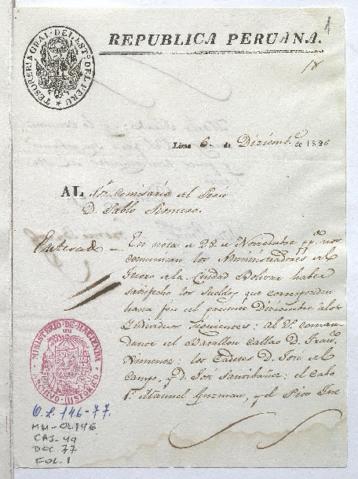 1
TESORERIA GRAL. DEL EST. DEL PERU
REPUBLICA PERUANA.
Lima 6. de Diziemb.e de 1826
AL Sor. Comisario del
D. Pablo Romero.
En nota de 28 de Noviembre pp. nos
comunican los Administradores del
Tesoro de la Ciudad Bolivar haber
satisfecho los sueldos que corresponden
hasta fin del presente Diciembre a los
Individuos siguientes: al Tte. coman-
dante del Batallon Callao D. Fran.
Ximenez: los Cadetes D. José del
Campo, y D. José Santibañez: el Cabo
1º Manuel Guzman, y el
MINISTERIO DE HACIENDA
O.L. 146-77
MH-OL146
CAJ. 49
DOC. 77
FOL. 1